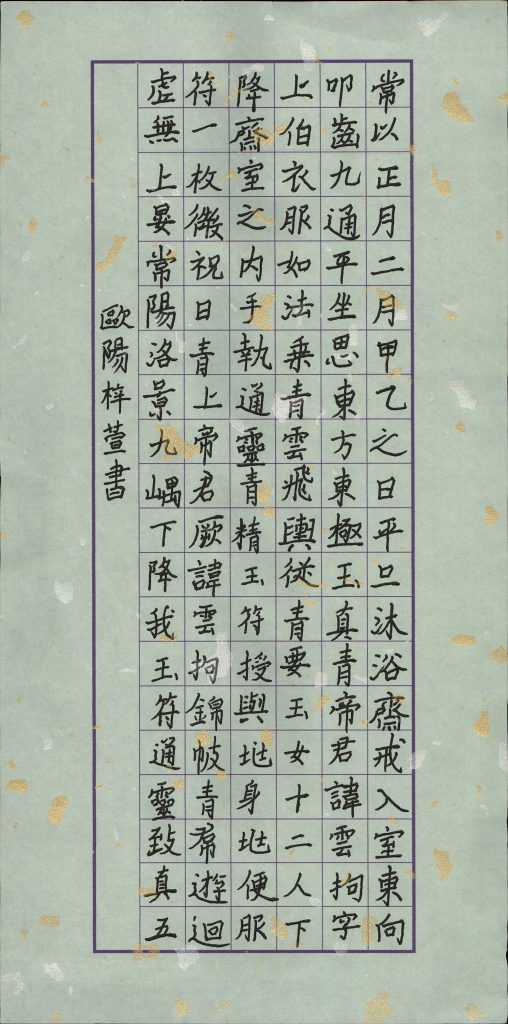 常以正月二月甲乙之日平旦沐浴齋戒入室東向
叩齒九通平坐思東方東極玉真青帝君諱雲拘字
上伯衣服如法乗青雲飛輿從青要玉女十二人下
降齋室之内手執通靈青精玉符授與兆身兆便服
符一枚微祝曰青上帝君厥諱雲拘錦帔青帬遊迴
虛無上晏常陽洛景九嵎下降我玉符通靈致真五
歐陽梓萱書